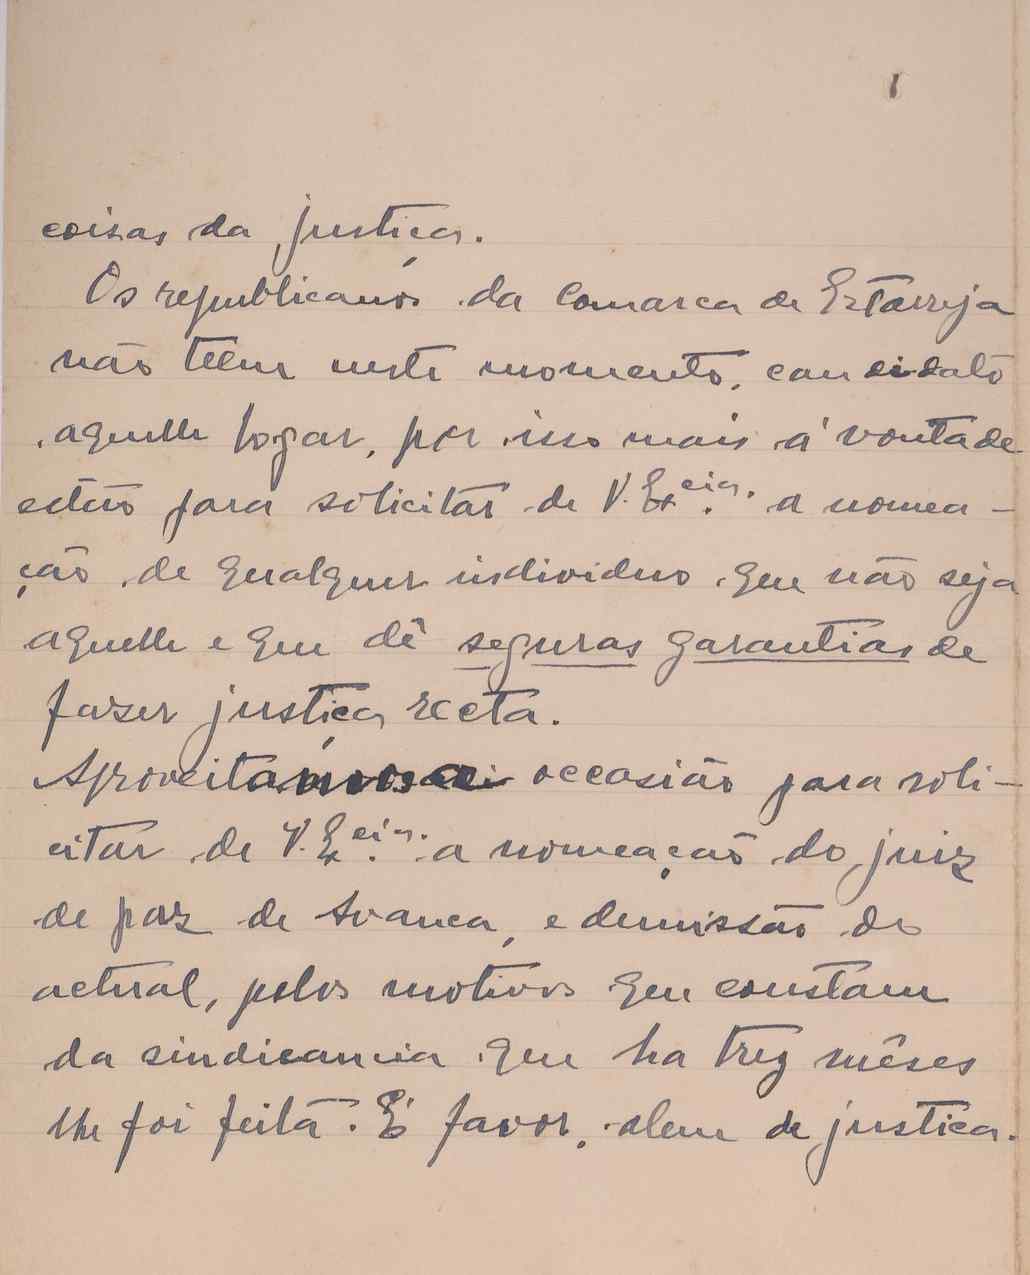 coisas da justiça.
Os republicanos da Comarca de Estarreja
não têem neste momento, candidato
aquelle logar, por isso mais á vontade
estão para solicitar de V. Ex.cia. a nomea-
ção de qualquer individuo que não seja
aquelle e que dê seguras garantias de
fazer justiça recta.
Aproveitamos a occasião para soli-
citar de V. Ex.cia. a nomeação do juiz
de paz de Avanca, e demissão do
actual, pelos motivos que constam
da sindicancia que ha trez mêses
lhe foi feita. É favor, alem de justiça.